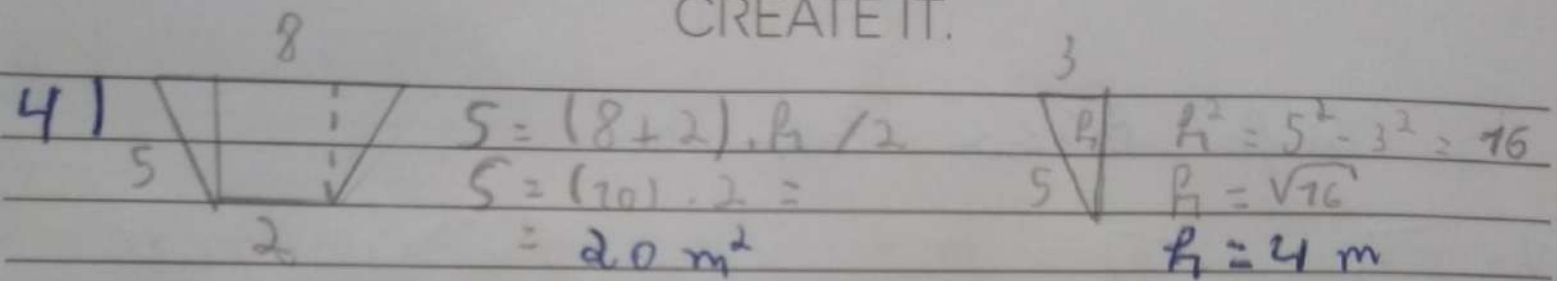 CREATE IT.
8
3
4)
S = (8+2).h /2
h² = 5² - 3² = 16
5
S = (10) . 2 =
5
h = √16
2
= 20 m²
h = 4 m